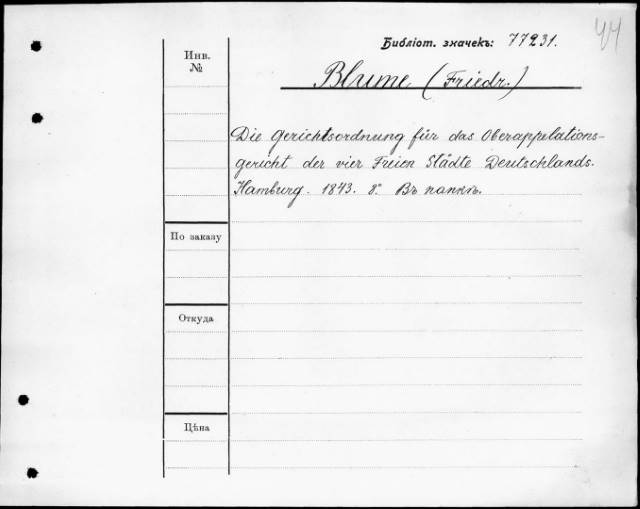 44
Библіот. значекъ: 77231.
Инв.
№
Blume (Friedr.)
Die Gerichtsordnung für das Oberappelations-
gericht der vier Freien Städte Deutschlands.
Hamburg. 1843. 8°. Въ папкѣ.
По заказу
Откуда
Цѣна